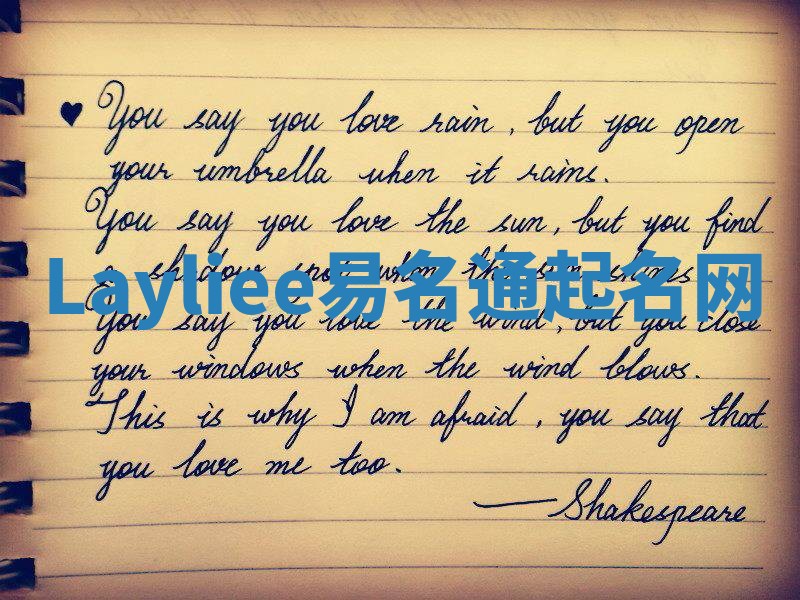 You say you love rain, but you open
your umbrella when it rains.
You say you love the sun, but you find
a shadow spot when the sun shines
Layliee易名通起名网
You say you love the wind, but you close
your windows when the wind blows.
This is why I am afraid, you say that
you love me too.
—Shakespeare